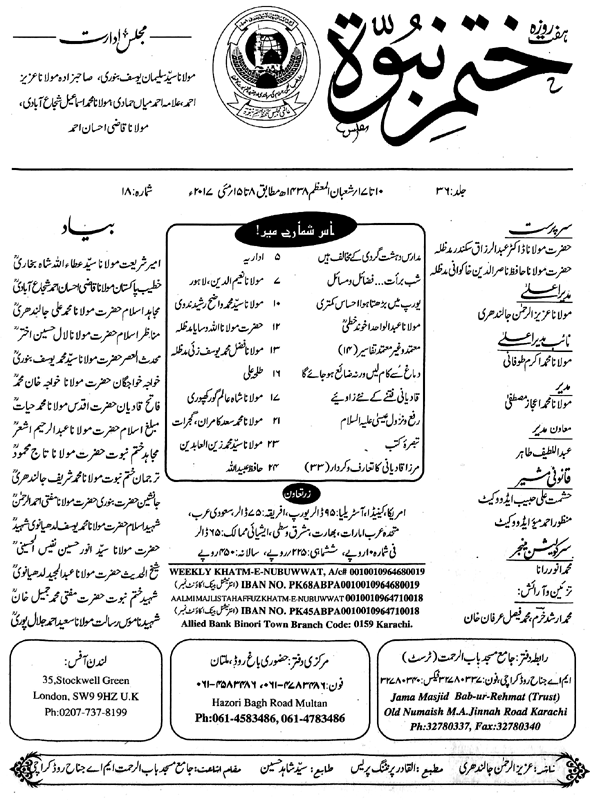 ہفت روزہ
ختم نبوۃ
مجلس ادارت
مولانا سید سلیمان یوسف بنوری، صاحبزادہ مولانا عزیز
احمد، علامہ احمد میاں حمادی، مولانا محمد اسماعیل شجاع آبادی،
مولانا قاضی احسان احمد
جلد: ۳۶
۱۰ تا ۱۷ شعبان المعظم ۱۴۳۸ھ مطابق ۸ تا ۱۵ مئی ۲۰۱۷ء
شمارہ: ۱۸
سرپرست
حضرت مولانا ڈاکٹر عبدالرزاق سکندر مدظلہ
حضرت مولانا حافظ ناصر الدین خاکوانی مدظلہ
مدیر اعلیٰ
مولانا عزیز الرحمٰن جالندھری
نائب مدیر اعلیٰ
مولانا محمد اکرم طوفانی
مدیر
مولانا محمد اعجاز مصطفیٰ
معاون مدیر
عبداللطیف طاہر
قانونی مشیر
حشمت علی حبیب ایڈووکیٹ
منظور احمد میؤ ایڈووکیٹ
سرکولیشن منیجر
محمد انور رانا
تزئین و آرائش:
محمد ارشد خرم، محمد فیصل عرفان خان
اس شمارے میں!
مدارس دہشت گردی کے مخالف ہیں ۵ اداریہ
شب برأت... فضائل و مسائل ۷ مولانا نعیم الدین، لاہور
یورپ میں بڑھتا ہوا احساس کمتری ۱۰ مولانا سید محمد واضح رشید ندوی
مولانا عبدالواحد اخوند خطیؒ ۱۲ حضرت مولانا اللہ وسایا مدظلہ
معتمد و غیر معتمد تفاسیر (۱۴) ۱۳ مولانا فضل محمد یوسف زئی مدظلہ
دماغ سے کام لیں ورنہ ضائع ہوجائے گا ۱۶ طلحہ علی
قادیانی فتنے کے نئے زاویئے ۱۷ مولانا شاہ عالم گورکھپوری
رفع و نزول عیسیٰ علیہ السلام ۲۱ مولانا محمد سعد کامران، گجرات
تبصرۂ کتب ۲۳ مولانا سید محمد زین العابدین
مرزا قادیانی کا تعارف و کردار (۳۳) ۲۴ حافظ عبیداللہ
زرتعاون
امریکا، کینیڈا، آسٹریلیا: ۹۵ ڈالر یورپ، افریقہ: ۷۵ ڈالر سعودی عرب،
متحدہ عرب امارات، بھارت، مشرق وسطی، ایشیائی ممالک: ۶۵ ڈالر
فی شمارہ ۱۰ روپے، ششماہی: ۲۲۵ روپے، سالانہ: ۴۵۰ روپے
WEEKLY KHATM-E-NUBUWWAT, A/c# 0010010964680019
IBAN NO. PK68ABPA0010010964680019 (انٹرنیشنل بینک اکاؤنٹ نمبر)
AALMI MAJLIS TAHAFFUZ KHATM-E-NUBUWWAT 0010010964710018
IBAN NO. PK45ABPA0010010964710018 (انٹرنیشنل بینک اکاؤنٹ نمبر)
Allied Bank Binori Town Branch Code: 0159 Karachi.
بیاد
امیر شریعت مولانا سید عطاء اللہ شاہ بخاریؒ
خطیب پاکستان مولانا قاضی احسان احمد شجاع آبادیؒ
مجاہد اسلام حضرت مولانا محمد علی جالندھریؒ
مناظر اسلام حضرت مولانا لال حسین اخترؒ
محدث العصر حضرت مولانا سید محمد یوسف بنوریؒ
خواجہ خواجگان حضرت مولانا خواجہ خان محمدؒ
فاتح قادیان حضرت اقدس مولانا محمد حیاتؒ
مبلغ اسلام حضرت مولانا عبدالرحیم اشعرؒ
مجاہد ختم نبوت حضرت مولانا تاج محمودؒ
ترجمان ختم نبوت حضرت مولانا محمد شریف جالندھریؒ
جانشین حضرت بنوری حضرت مولانا مفتی احمد الرحمٰنؒ
شہید اسلام حضرت مولانا محمد یوسف لدھیانوی شہیدؒ
حضرت مولانا سید انور حسین نفیس الحسینیؒ
شیخ الحدیث حضرت مولانا عبدالمجید لدھیانویؒ
شہید ختم نبوت حضرت مفتی محمد جمیل خانؒ
شہید ناموس رسالت مولانا سعید احمد جلال پوریؒ
رابطہ دفتر: جامع مسجد باب الرحمت (ٹرسٹ)
ایم اے جناح روڈ کراچی، فون: ۳۲۷۸۰۳۳۷ فیکس: ۳۲۷۸۰۳۴۰
Jama Masjid Bab-ur-Rehmat (Trust)
Old Numaish M.A.Jinnah Road Karachi
Ph:32780337, Fax:32780340
مرکزی دفتر: حضوری باغ روڈ، ملتان
فون: ۰۶۱-۴۷۸۳۴۸۶، ۰۶۱-۴۵۸۳۴۸۶
Hazori Bagh Road Multan
Ph:061-4583486, 061-4783486
لندن آفس:
35,Stockwell Green
London, SW9 9HZ U.K
Ph:0207-737-8199
ناشر: عزیز الرحمٰن جالندھری مطبع: القادر پرنٹنگ پریس طابع: سید شاہد حسین مقام اشاعت: جامع مسجد باب الرحمت ایم اے جناح روڈ کراچی